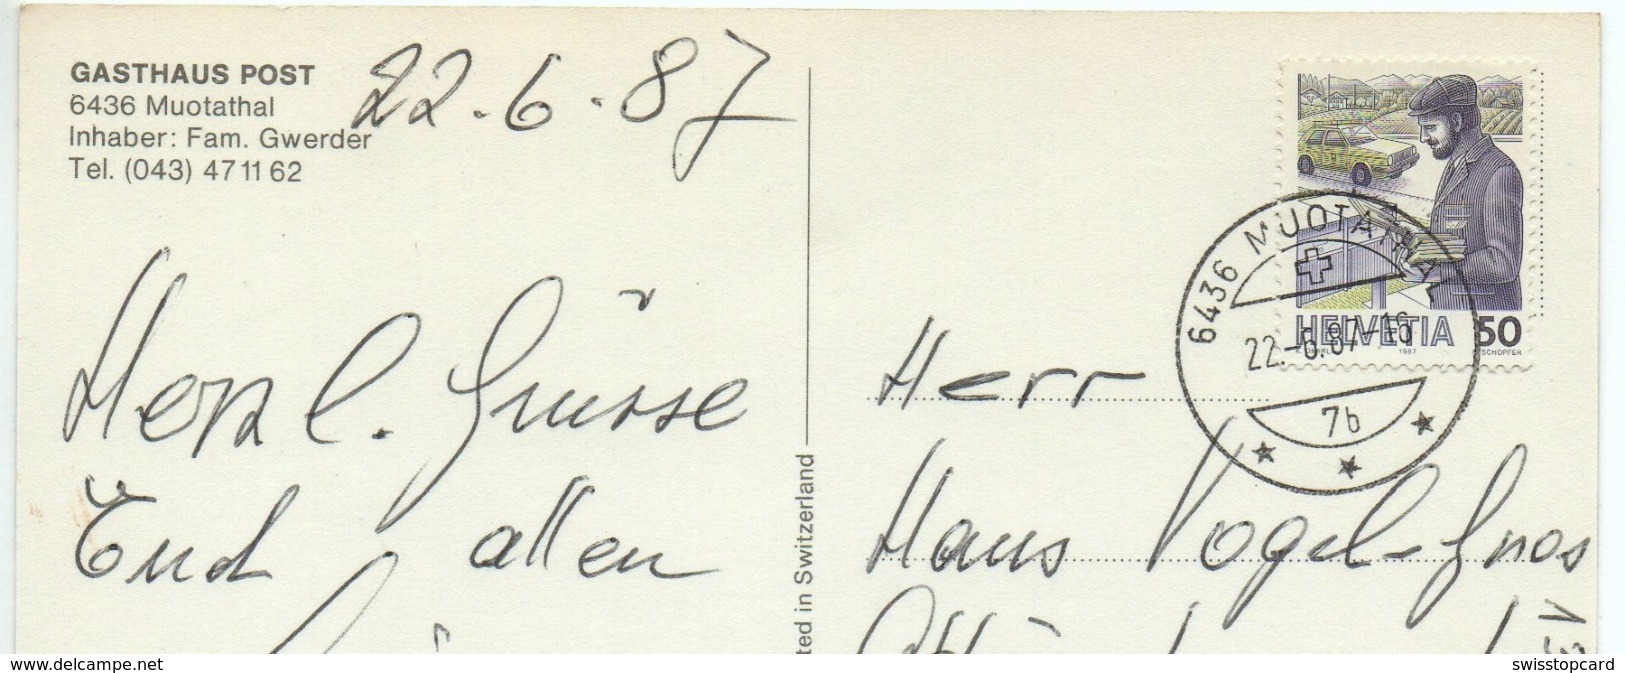 GASTHAUS POST
6436 Muotathal
Inhaber: Fam. Gwerder
Tel. (043) 47 11 62
22.6.87
Herzl. Grüsse
Euch allen
ted in Switzerland
HELVETIA 50
1987
SCHÖPFER
6436 MUOTATHAL
22.-6.87-16
7b
Herr
Hans Vogel-Gnos
www.delcampe.com
swisstopcard